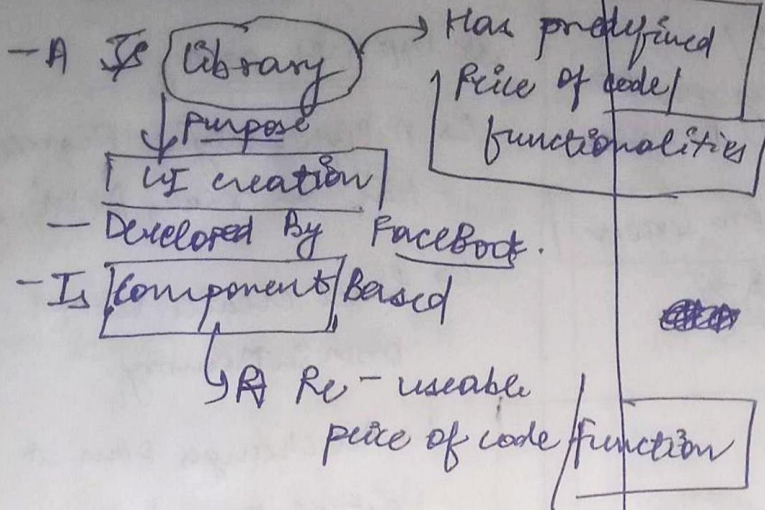 - A Js Library → Has predefined
Peice of code /
functionalities
Purpose
UI creation
- Developed By FaceBook.
- Is Component Based
A Re-useable
peice of code / function